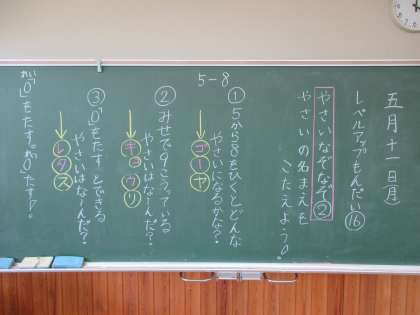 五月十一日(月)
レベルアップもんだい⑯
やさいなぞなぞ②
やさいの名まえを
こたえよう!
5-8
①5から8をひくとどんな
やさいになるかな?
ゴーヤ
②みせで9こうっている
やさいはなーんだ?
キュウリ
③「0」をたすとできる
やさいはなーんだ?
レタス
れい
「0」をたす。